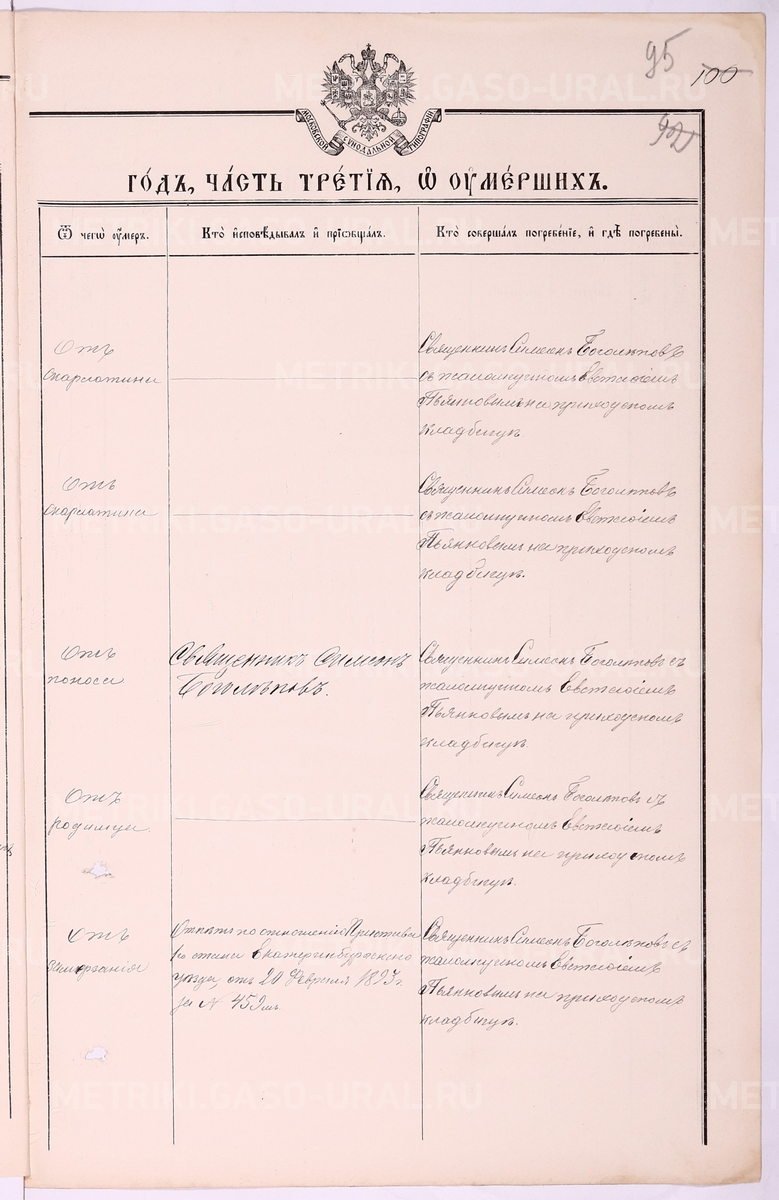 95 100
92
МОСКОВСКОЙ СѴНОДАЛЬНОЙ ТИПОГРАФІИ
ГО́ДЪ, ЧА́СТЬ ТРЕ́ТІЯ, Ѽ ОУ҆МЕ́РШИХЪ.
Ѿ чегѡ̀ оу҆́меръ.
Кто̀ и҆сповѣ́дывалъ и҆ прїѡбща́лъ.
Кто̀ соверша́лъ погребе́нїе, и҆ гдѣ̀ погребены̀.
Отъ
скарлатины
Священникъ Симеонъ Боголѣповъ
съ псаломщикомъ Евгеніемъ
Пьянковымъ на приходскомъ
кладбищѣ.
Отъ
скарлатины
Священникъ Симеонъ Боголѣповъ
съ псаломщикомъ Евгеніемъ
Пьянковымъ на приходскомъ
кладбищѣ.
Отъ
поноса
Священникъ Симеонъ
Боголѣповъ.
Священникъ Симеонъ Боголѣповъ съ
псаломщикомъ Евгеніемъ
Пьянковымъ на приходскомъ
кладбищѣ.
Отъ
родимца
Священникъ Симеонъ Боголѣповъ съ
псаломщикомъ Евгеніемъ
Пьянковымъ на приходскомъ
кладбищѣ.
Отъ
замерзанія
Отпѣтъ по отношенію Пристава
стана Екатеринбургскаго
уѣзда, отъ 20 Февраля 1893 г.
за № 459мъ
Священникъ Симеонъ Боголѣповъ съ
псаломщикомъ Евгеніемъ
Пьянковымъ на приходскомъ
кладбищѣ.
METRIKI.GASO-URAL.RU